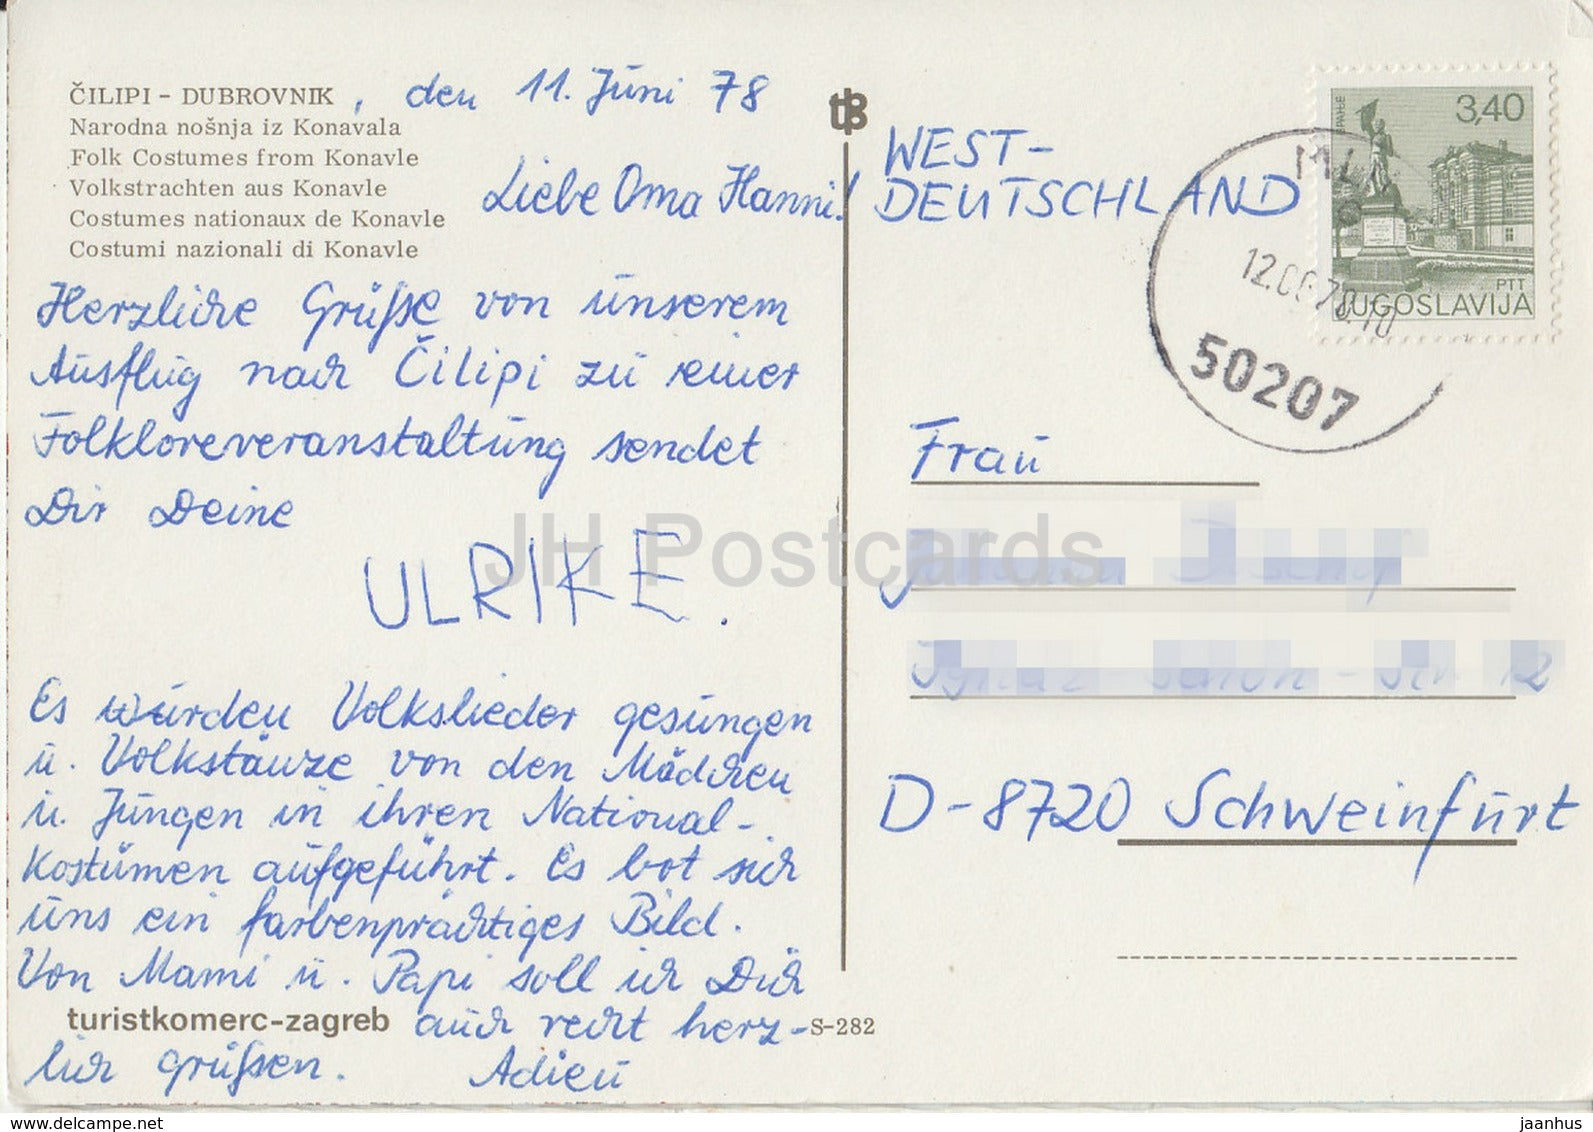 ČILIPI - DUBROVNIK, den 11. Juni 78
Narodna nošnja iz Konavala
Folk Costumes from Konavle
Volkstrachten aus Konavle
Costumes nationaux de Konavle
Costumi nazionali di Konavle
Liebe Oma Hanni!
Herzliche Grüße von unserem
Ausflug nach Čilipi zu einer
Folkloreveranstaltung sendet
Dir Deine
ULRIKE.
Es wurden Volkslieder gesungen
u. Volkstänze von den Mädchen
u. Jungen in ihren National-
kostümen aufgeführt. Es bot sich
uns ein farbenprächtiges Bild.
Von Mami u. Papi soll ich Dich
auch recht herz-
lich grüßen. Adieu
turistkomerc-zagreb
S-282
tB
WEST-
DEUTSCHLAND
3,40
PTT
JUGOSLAVIJA
12.06.78
50207
Frau
12
D-8720 Schweinfurt
JH Postcards
www.delcampe.net
jaanhus